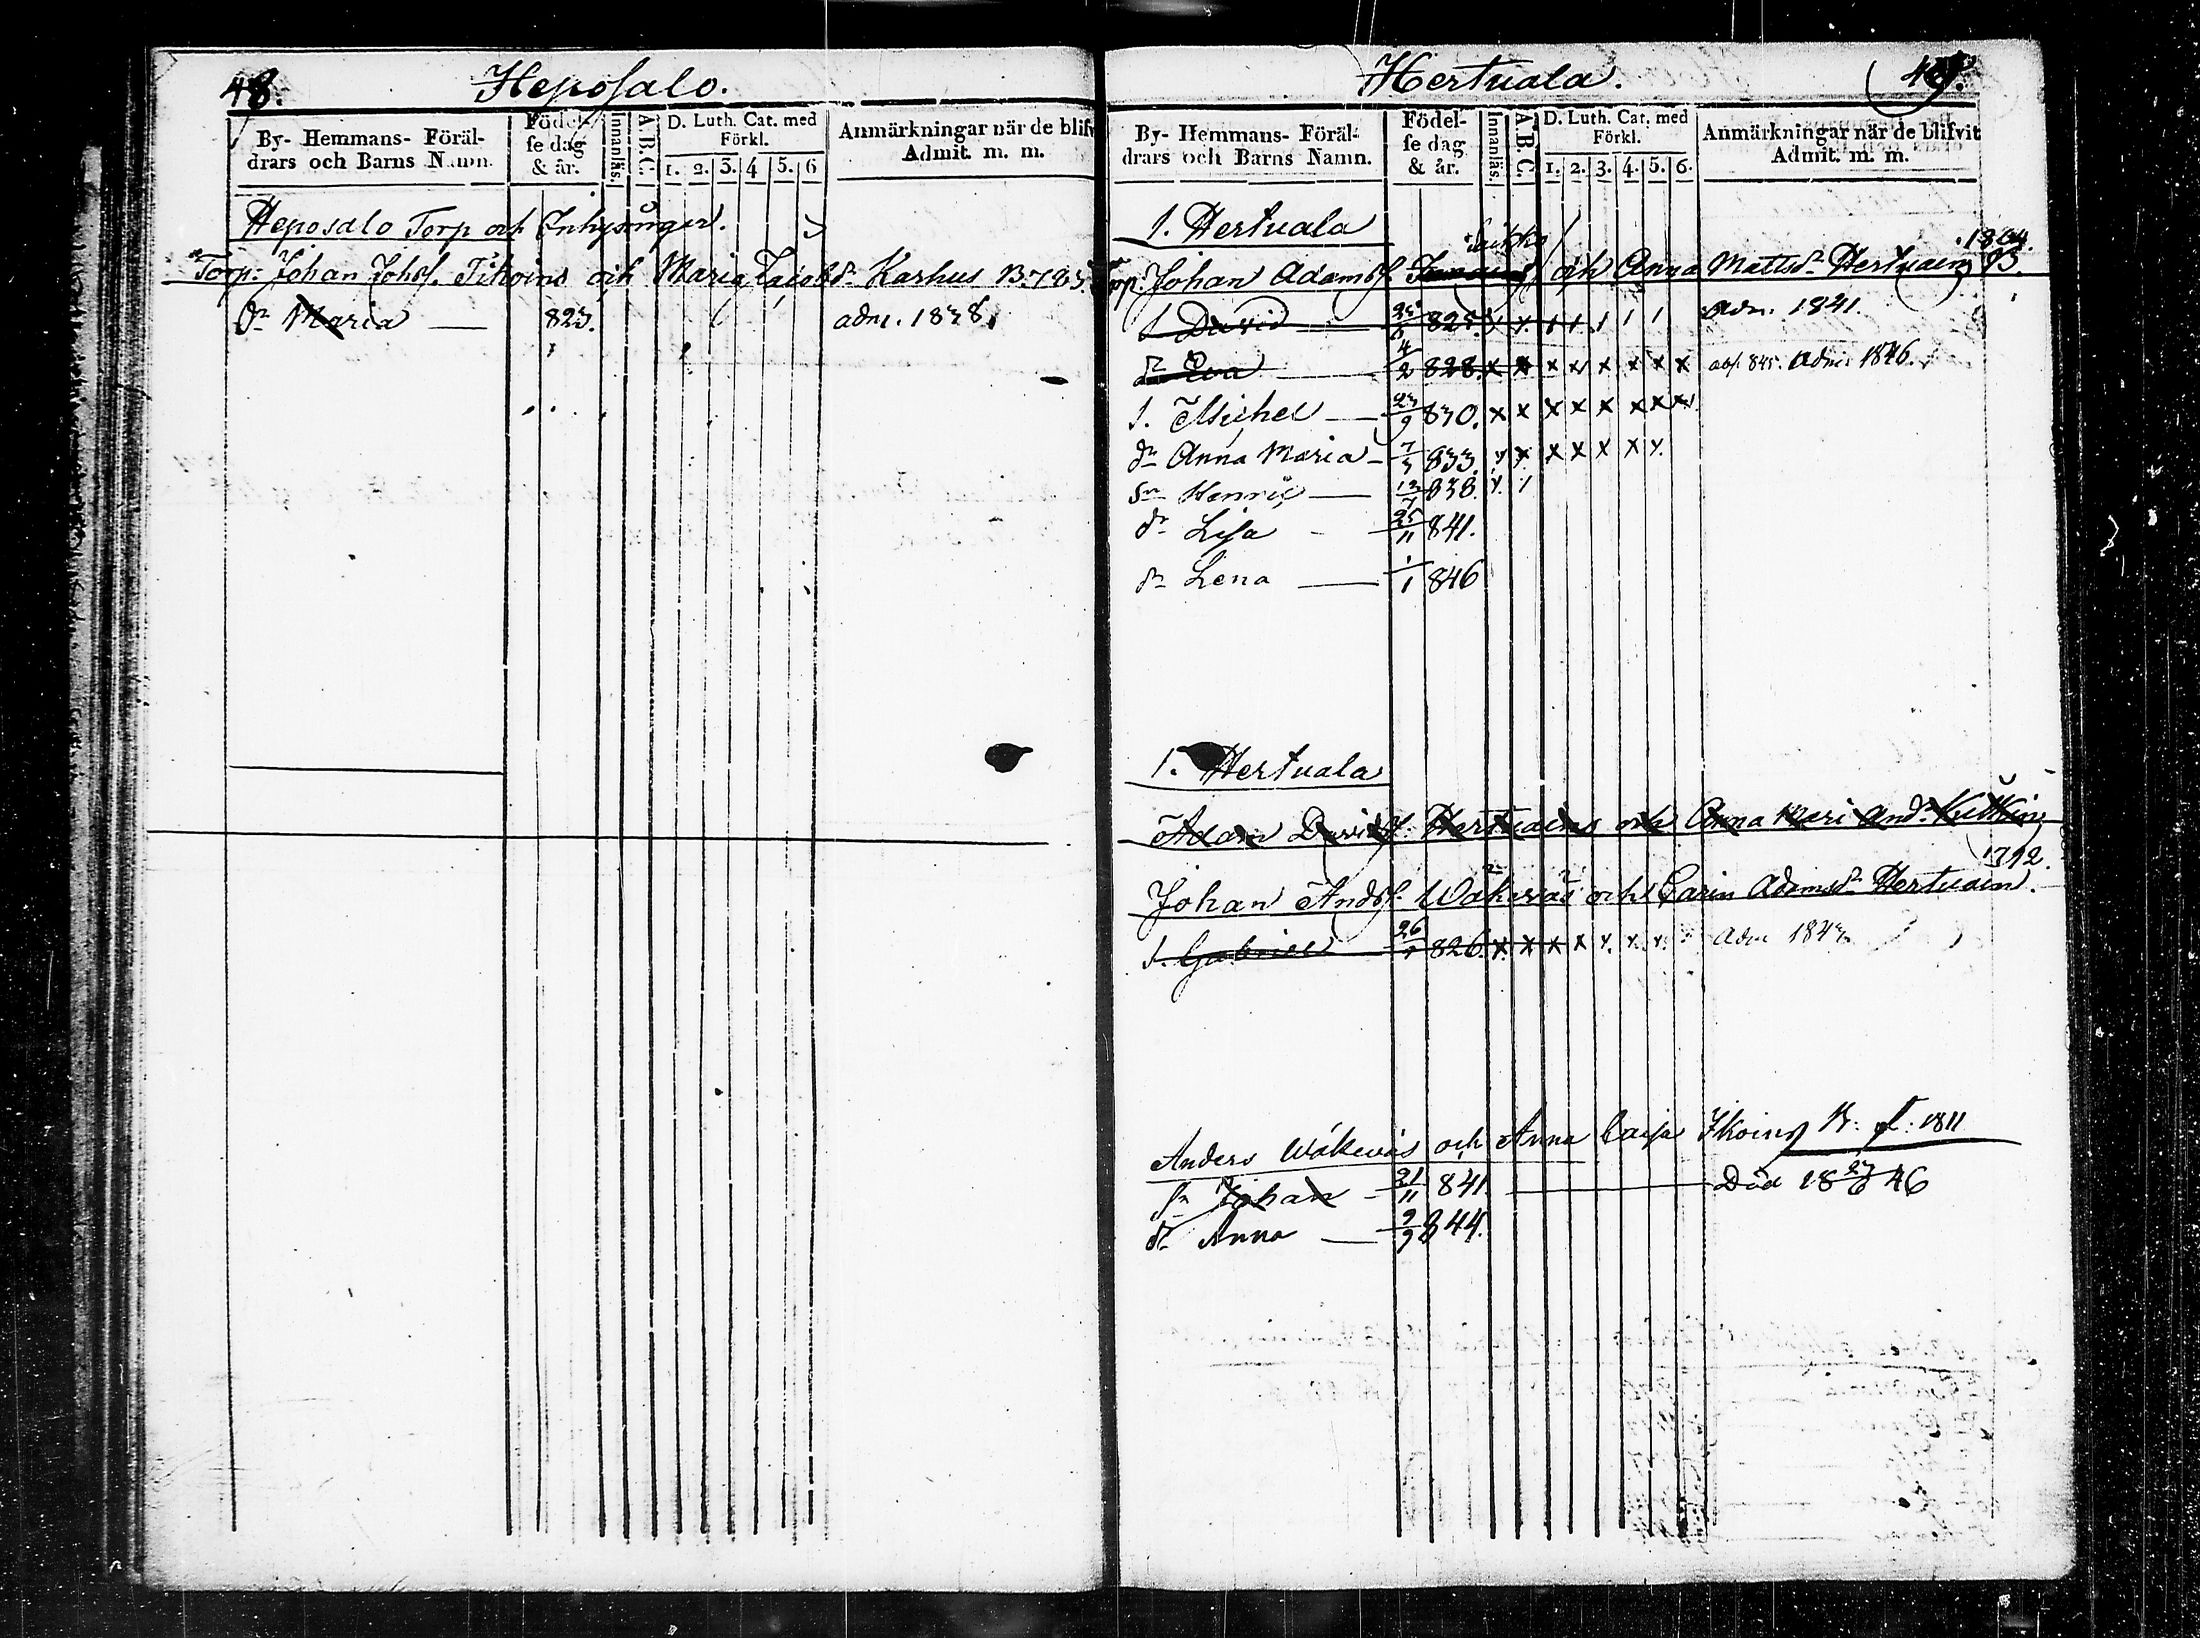 48.
Heposalo.
By- Hemmans- Föräl-
drars och Barns Namn.
Födel-
se dag
& år.
Innanläs.
A.B.C.
D. Luth. Cat. med
Förkl.
1. 2. 3. 4 5. 6
Anmärkningar när de blifv
Admit. m. m.
Heposalo Torp och Inhysingar.
Torp: Johan Johs. Tikoins och Maria Jacobsdr Karhus B. 1783.
dr Maria — 823. adm. 1838.
Hertuala.
49.
By- Hemmans- Föräl-
drars och Barns Namn.
Födel-
se dag
& år.
Innanläs.
A.B.C.
D. Luth. Cat. med
Förkl.
1. 2. 3. 4. 5. 6.
Anmärkningar när de blifvit
Admit. m. m.
1. Hertuala
1804.
Torp. Johan Adams. och Anna Mattsdr Hertuain B.
s David 825. Adm. 1841.
dr Eva — 4/2 828. x x x x x x x x abs 845. Adm 1846.
s. Michel — 23/9 830. x x x x x x x x
dr Anna Maria — 833. x x x x x x x
sn Henric — 12/7 838.
dr Lisa - 25/11 841.
dr Lena — 1/1 846
1. Hertuala
Adam Davids. Hertuains och Anna Mari Andr
1792.
Johan Ands. Wäkeväs och Carin Adamsdr Hertuain.
s. Gabriel 826. x x x x x x x Adm 1843
Anders Wäkeväs och Anna Caisa Ikoing 1811
sn Johan - 21/11 841. — Död 18 46
dr Anna — 9/9 844.